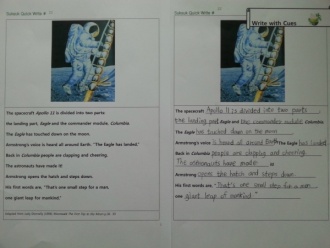 Science Quick Write A
The spacecraft Apollo 11 is divided into two parts
the landing part, Eagle and the commander module, Columbia.
The Eagle has touched down on the moon.
Armstrong's voice is heard all around Earth. "The Eagle has landed."
Back in Columbia people are clapping and cheering.
The astronauts have made it!
Armstrong opens the hatch and steps down.
His first words are, "That's one small step for man,
one giant leap for mankind."
Science Quick Write A
Write with Cues
The spacecraft Apollo 11 is divided into two parts
the landing part Eagle and the commander module Columbia
The Eagle has touched down on the moon.
Armstrong's voice is heard all around Earth The Eagle has landed
Back in Columbia people are clapping and cheering.
The astronauts have made it
Armstrong opens the hatch and steps down.
His first words are, "That's one small step for a man
one giant leap of mankind."